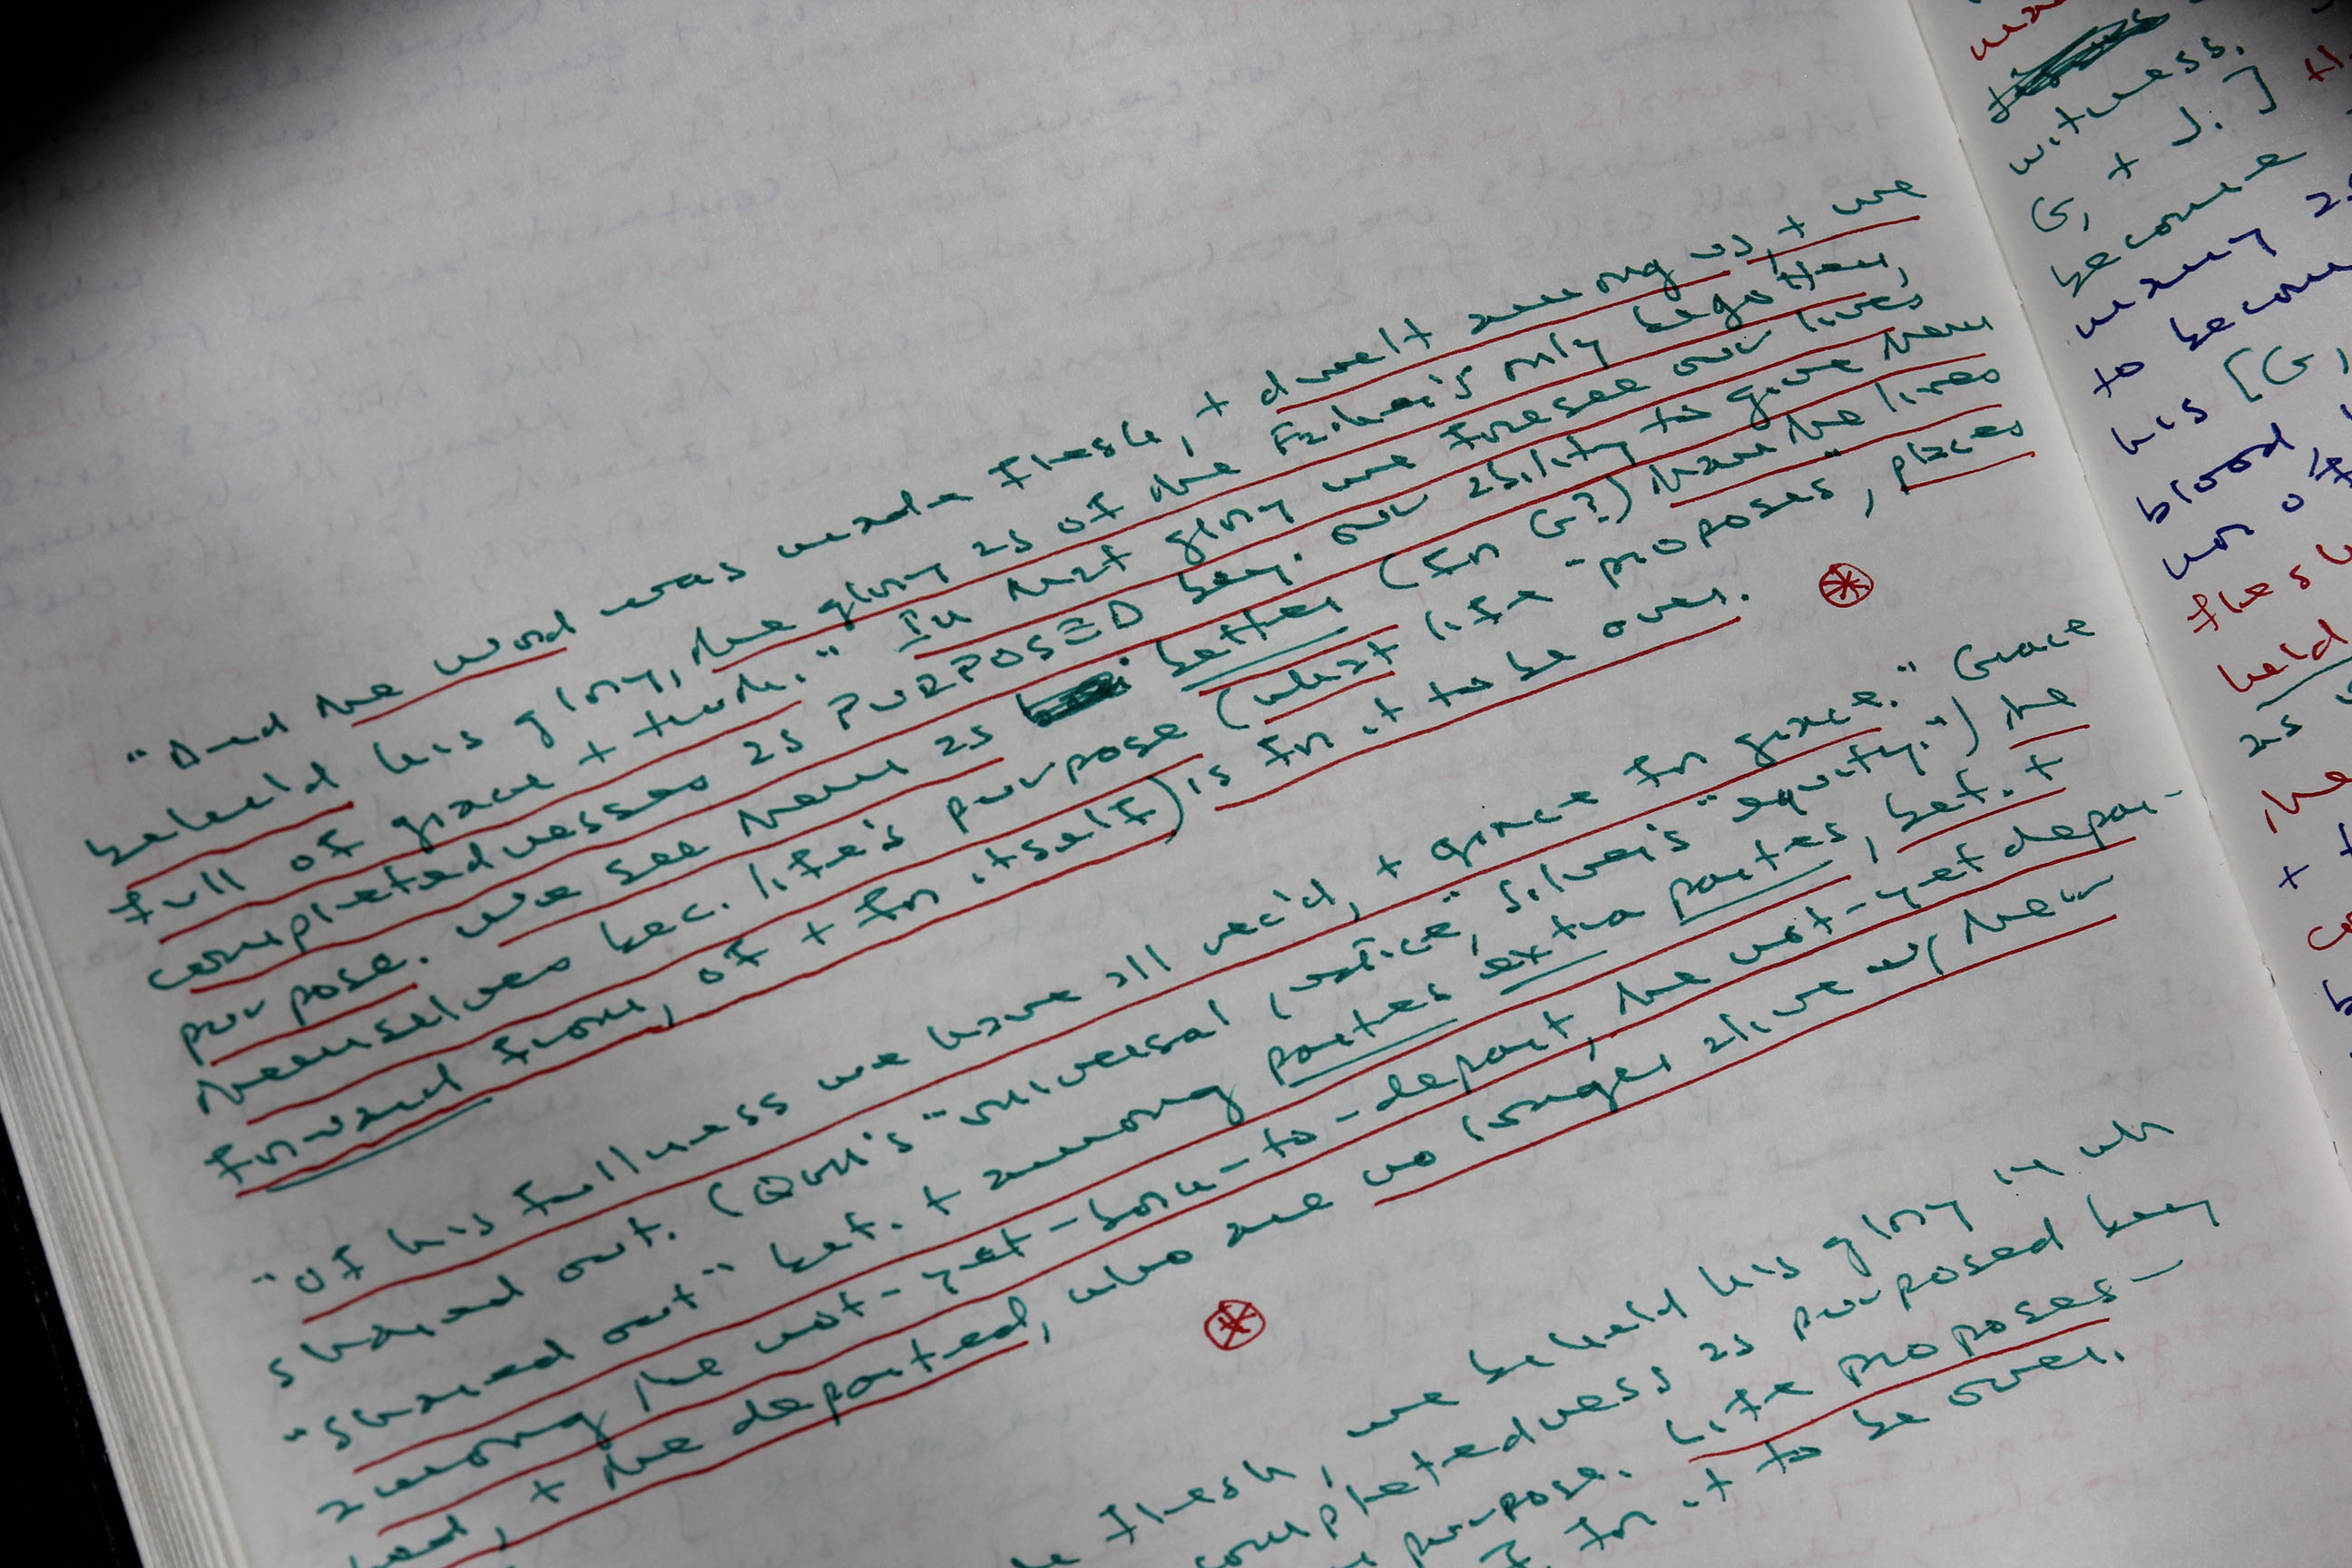 "And the word was made flesh, + dwelt among us, + we
beheld his glory, the glory as of the Father's only begotten,
full of grace + truth." In that glory we foresee our lives
completednesses as PURPOSED by. Our ability to give them
purpose. We see them as better (for G?) than the lives
themselves bec. life's purpose (what life "proposes", places
forward from, of + for itself) is for it to be over.
"Of his fullness we have all rec'd, + grace for grace." Grace
shared out. (Orr's "universal justice", Silver's "equity".) the
"shared out" bet. + among partes extra partes, bet. +
among the not-yet-born-to-depart, the not-yet depar-
ted, + the departed, who are no longer alive w/ their
flesh, we beheld his glory in wh
completedness as purposed by
purpose. Life proposes
for it to be over.
witness.
G, + J.]
become
many as
to become
his [G,
blood,
nor of
flesh
held
as
the
+